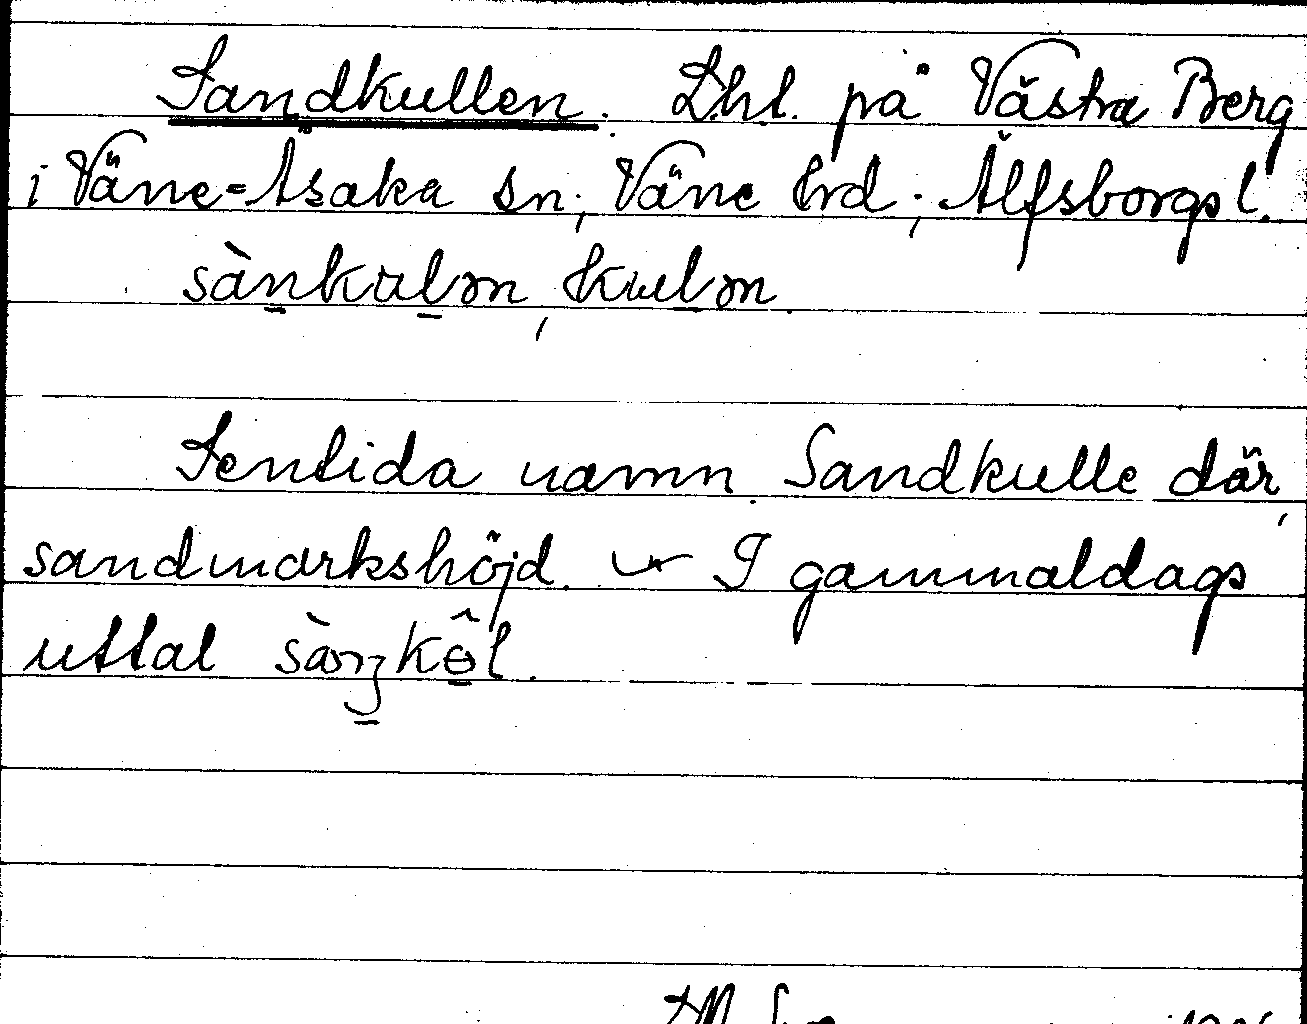 Sandkullen. Lhl. på Västra Berg
i Väne-Åsaka sn, Väne hrd, Älfsborgs l.
sànkulən, kulən
Sentida namn. Sandkulle där,
sandmarkshöjd. I gammaldags
uttal